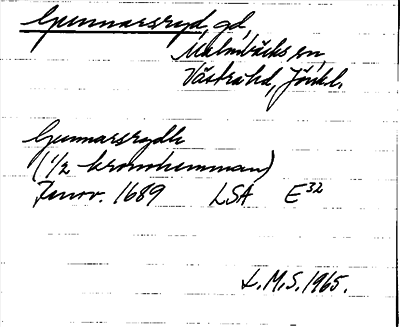 Gunnarsryd, gd,
Malmbäcks sn
Västra hd, Jönk.l.
Gunnarsrydh
(1/2 kronohemman)
Jenov. 1689 LSA E32
L.M.S. 1965.